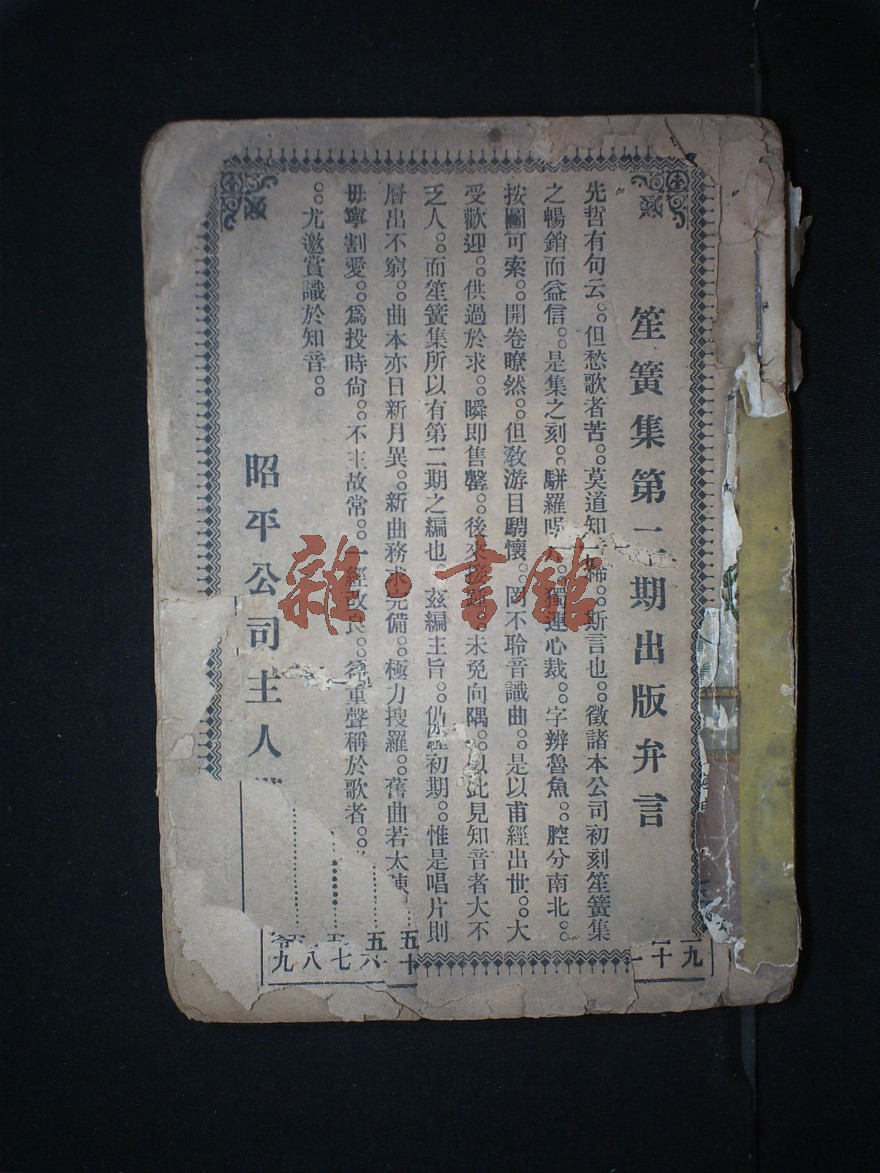 笙簧集第二期出版弁言
先哲有句云。。但愁歌者苦。。莫道知稀。。斯言也。。徵諸本公司初刻笙簧集
之暢銷而益信。。是集之刻。。駢羅。。獨運心裁。。字辨魯魚。。腔分南北。。
按圖可索。。開卷瞭然。。但敎游目騁懷。。罔不聆音識曲。。是以甫經出世。。大
受歡迎。。供過於求。。瞬即售罄。。後來接踵。。未免向隅。。以此見知音者大不
乏人。。而笙簧集所以有第二期之編也。。玆編主旨。。仍初期。。惟是唱片則
層出不窮。。曲本亦日新月異。。新曲務求完備。。極力搜羅。。舊曲若太
毋寧割愛。。爲投時尙。。不主故常。。一經改良。。重聲稱於歌者。。
。。尤邀賞識於知音。。
昭平公司主人
九
十
五十
五六
七
八
九
雜·書館